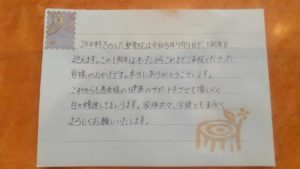 JR平野きのした整骨院は令和5年7月2日で、1周年を
迎えます。この1周年はオープンからこれまでご来院くださった
皆様のおかげです。本当にありがとうございます。
これからも患者様の健康のサポートをさせて頂くべく
日々精進してまいります。家族共々、今後とも末永く
よろしくお願いいたします。